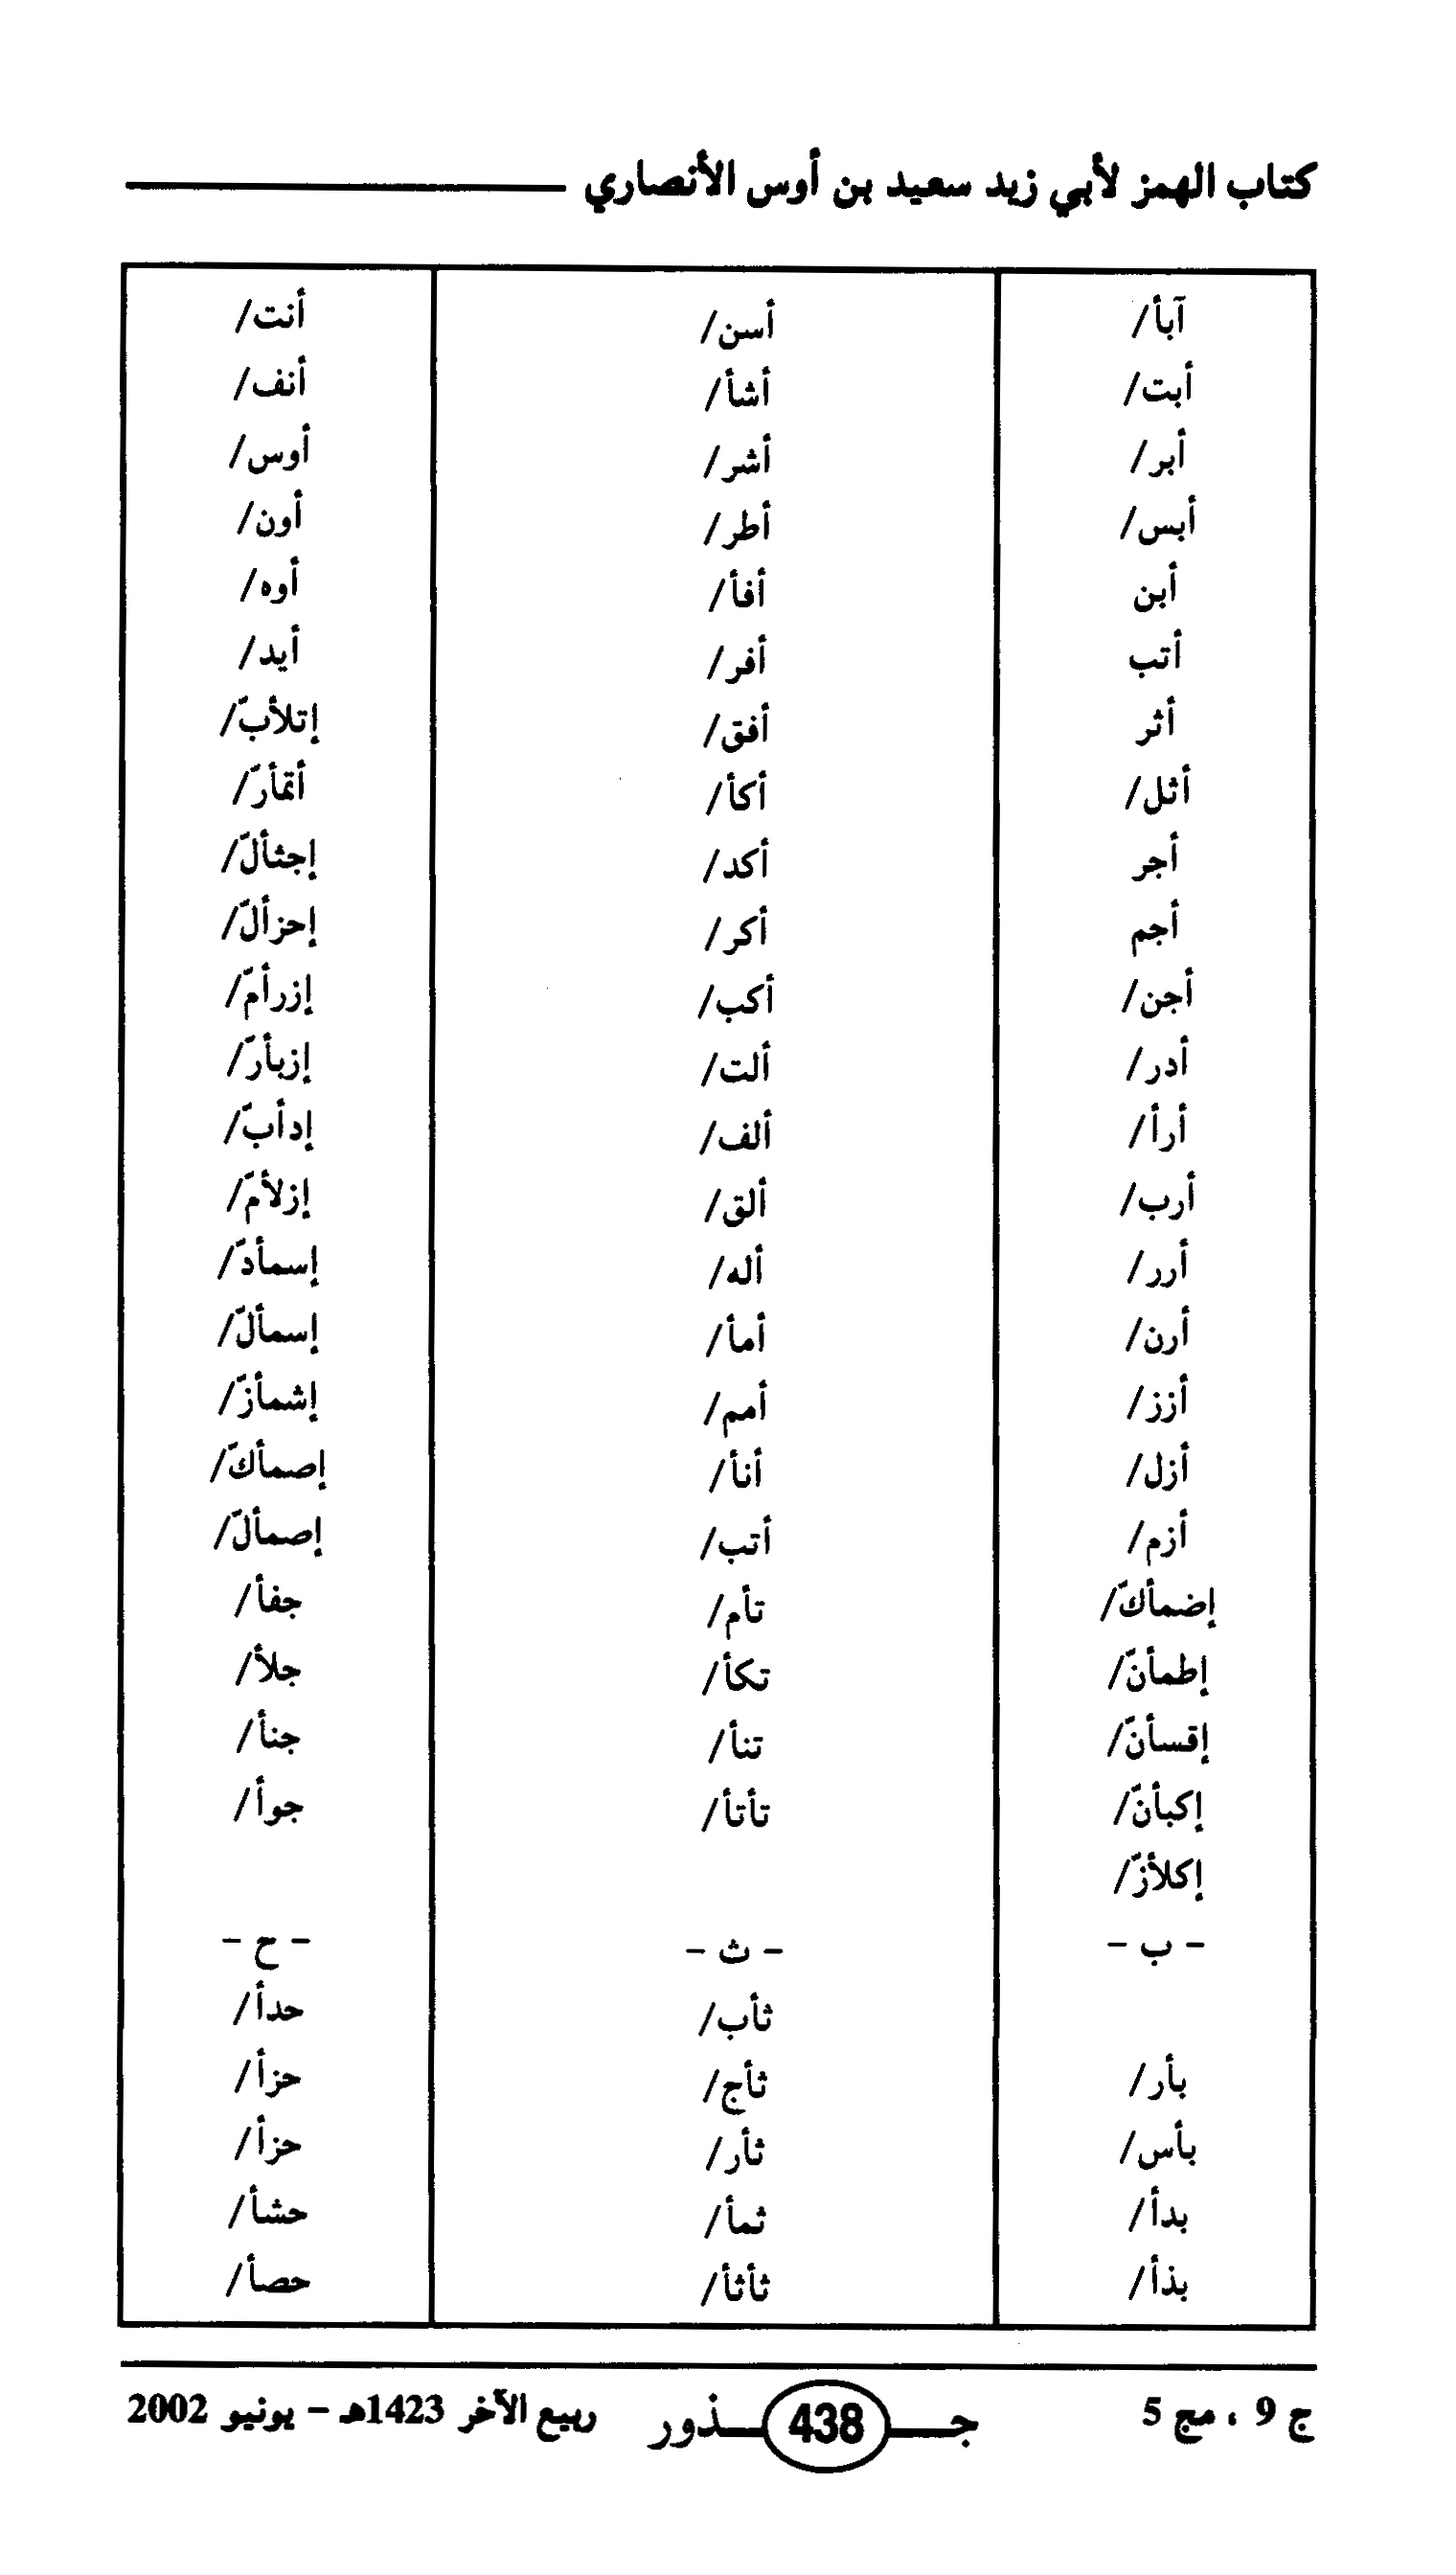 كتاب الهمز لأبي زيد سعيد بن أوس الأنصاري
آبأ/ أسن/ أنت/
أبت/ أشأ/ أنف/
أبر/ أشر/ أوس/
أبس/ أطر/ أون/
أبن أفأ/ أوه/
أتب أفر/ أيد/
أثر أفق/ إتلأبّ/
أثل/ أكأ/ أتمأرّ/
أجر أكد/ إجثألّ/
أجم أكر/ إحزألّ/
أجن/ أكب/ إزرأمّ/
أدر/ ألت/ إزبأرّ/
أرأ/ ألف/ إدأبّ/
أرب/ ألق/ إزلأمّ/
أرر/ أله/ إسمأدّ/
أرن/ أمأ/ إسمألّ/
أزز/ أمم/ إشمأزّ/
أزل/ أنأ/ إصمأكّ/
أزم/ أتب/ إصمألّ/
إضمأكّ/ تأم/ جفأ/
إطمأنّ/ تكأ/ جلأ/
إقسأنّ/ تنأ/ جنأ/
إكبأنّ/ تأتأ/ جوأ/
إكلأزّ/
- ب - - ث - - ح -
ثأب/ حدأ/
بأر/ ثأج/ حزأ/
بأس/ ثأر/ حزأ/
بدأ/ ثمأ/ حشأ/
بذأ/ ثأثأ/ حصأ/
ج 9 ، مج 5 جـ 438 ـذور ربيع الآخر 1423هـ - يونيو 2002